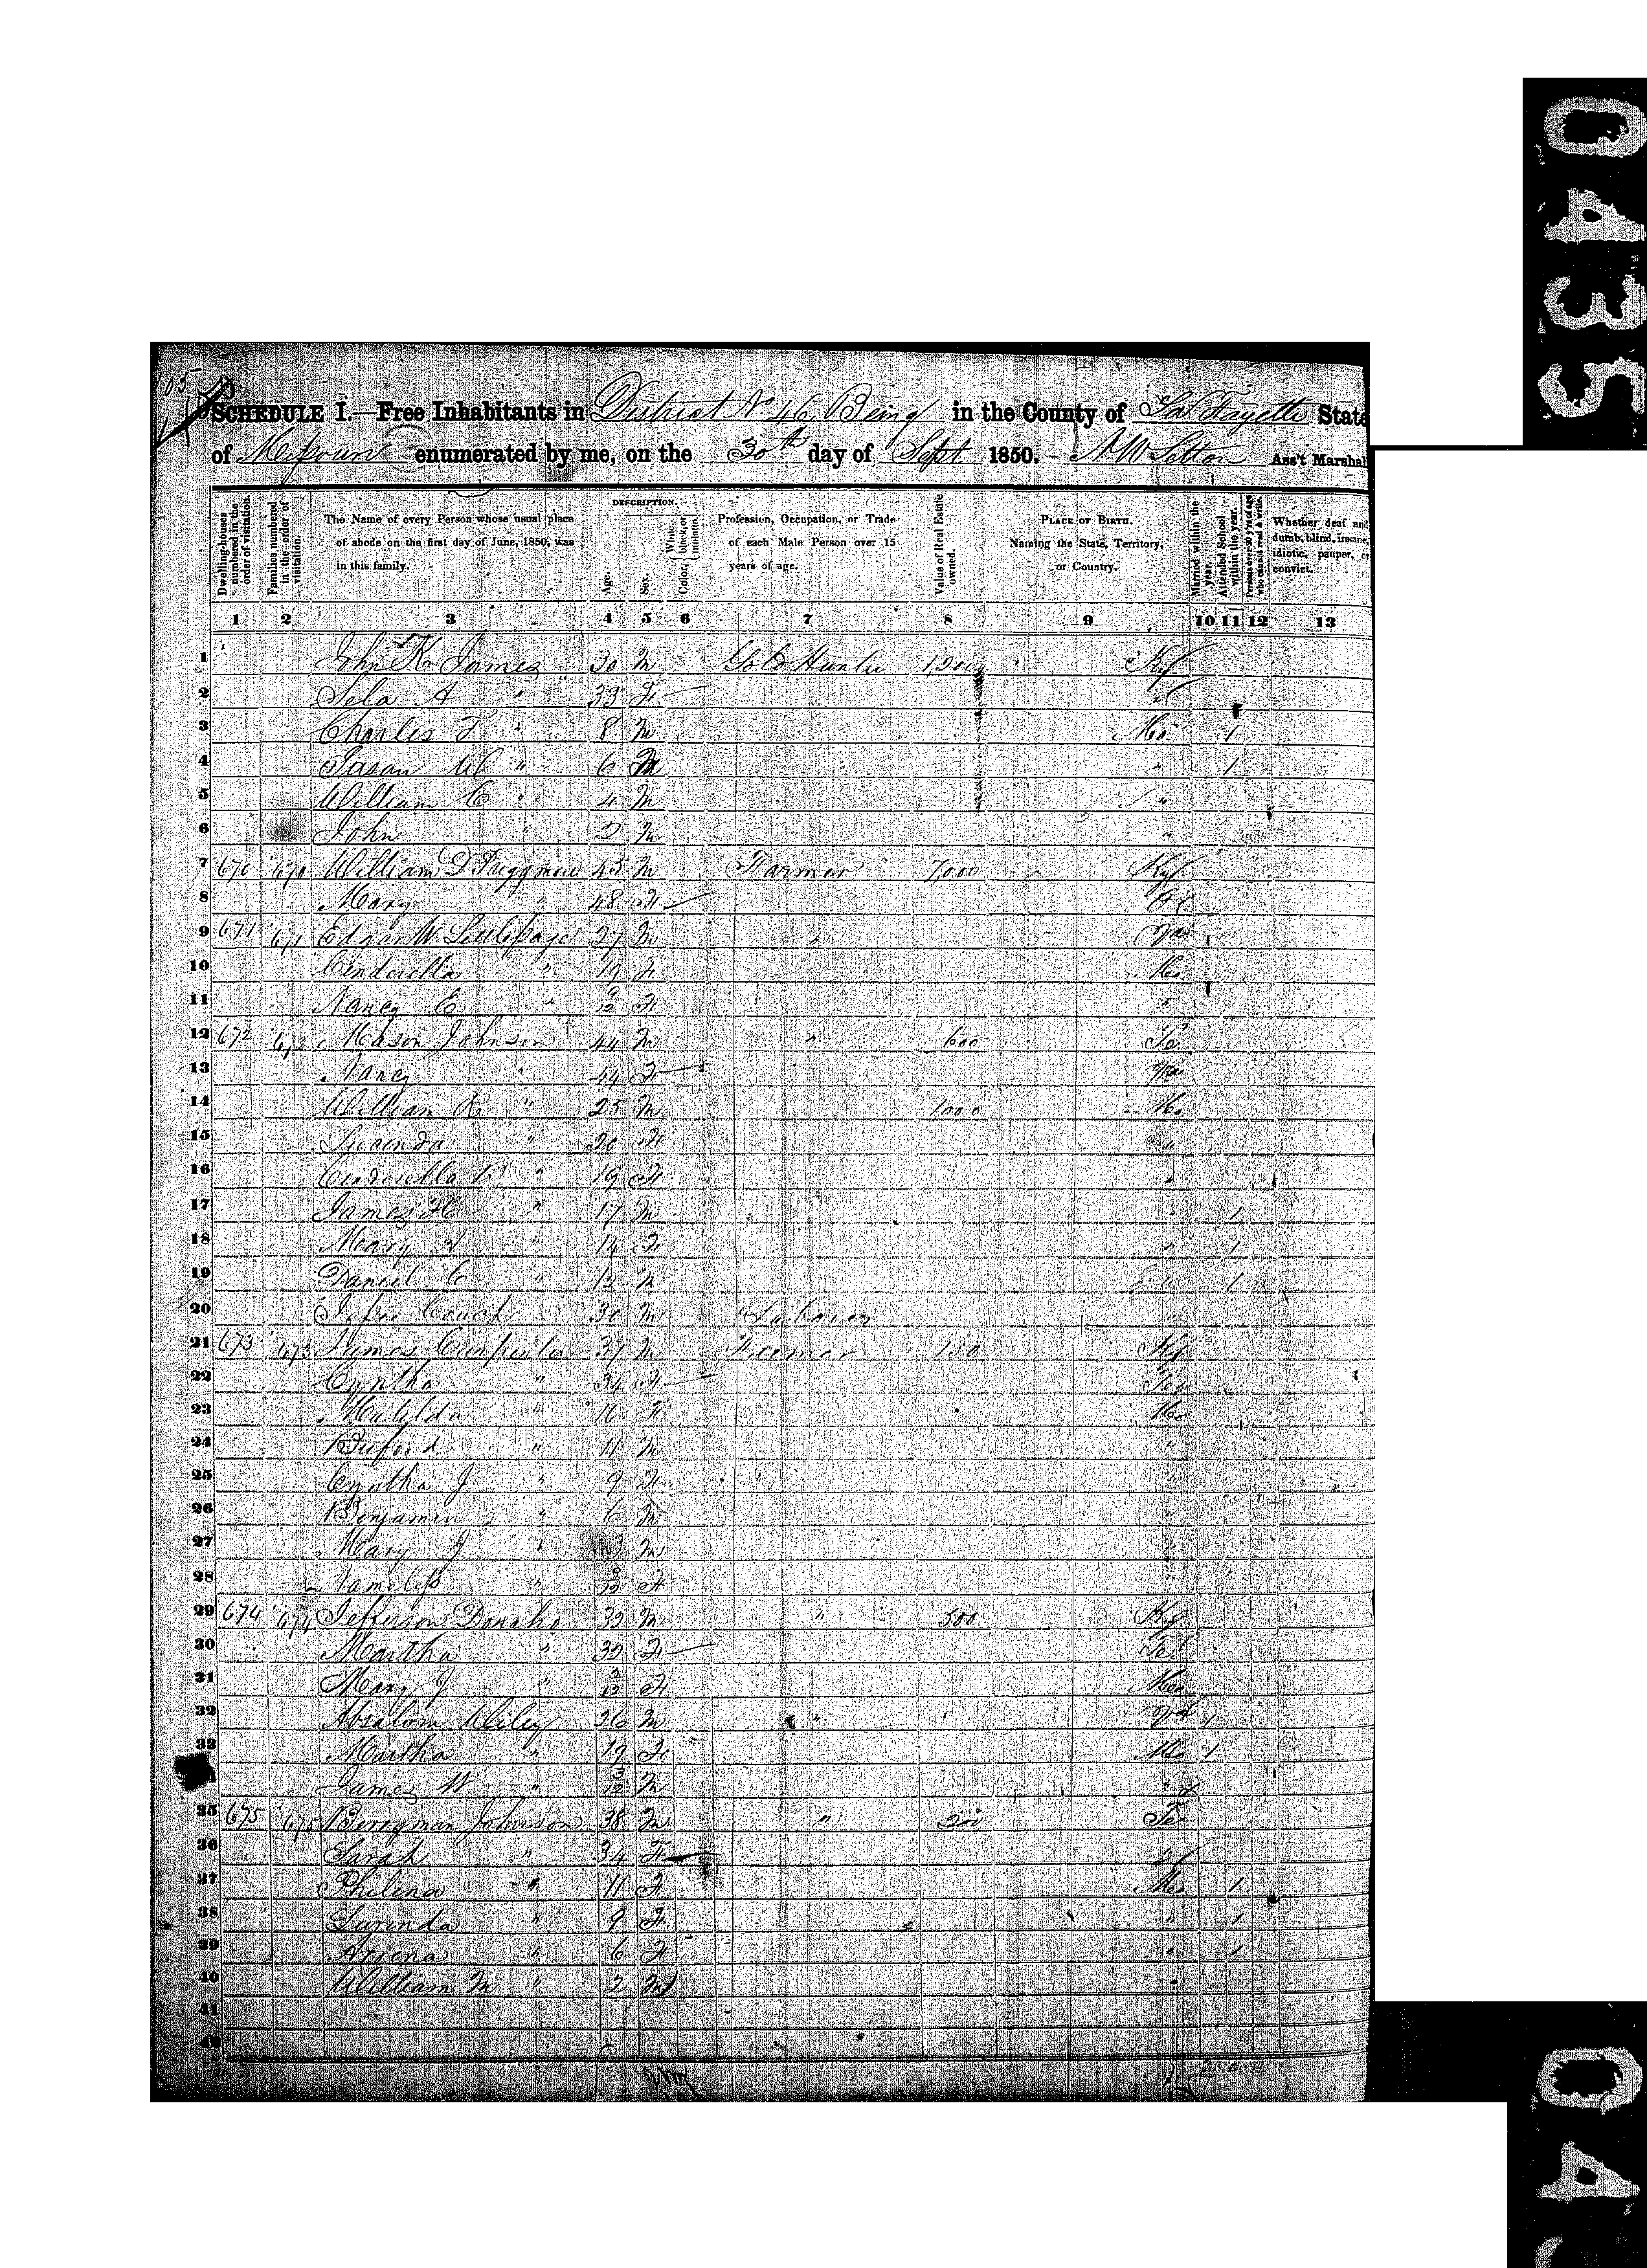 0435
SCHEDULE I.—Free Inhabitants in District No 46 Being in the County of La Fayette State
of Missouri enumerated by me, on the 30th day of Sept 1850. Ass't Marshal
Dwelling-houses numbered in the order of visitation.
Families numbered in the order of visitation.
The Name of every Person whose usual place of abode on the first day of June, 1850, was in this family.
DESCRIPTION.
Age.
Sex.
Color, White, black, or mulatto.
Profession, Occupation, or Trade of each Male Person over 15 years of age.
Value of Real Estate owned.
PLACE OF BIRTH. Naming the State, Territory, or Country.
Married within the year.
Attended School within the year.
Persons over 20 y'rs of age who cannot read & write.
Whether deaf and dumb, blind, insane, idiotic, pauper, or convict.
1 2 3 4 5 6 7 8 9 10 11 12 13
1 John K James 30 M Hunter 1,200 Ky
2 A " 33 F "
3 Charles T " 8 M Mo 1
4 " 6 " 1
5 William C " 4 M "
6 John " 2 M "
7 670 670 William D 45 M Farmer 7,000 Ky
8 Mary " 48 F
9 671 671 Edgar W 27 M " Va
10 Cinderella " 19 F Mo
11 Nancy E " F "
12 672 672 Mason Johnson 44 M " 600 Te
13 Nancy " 44 F
14 William R " 25 M 1000 Mo
15 Lucinda " 20 F "
16 Cinderella " 19 F "
17 James H " 17 M " 1
18 Mary " 14 F " 1
19 Daniel C " 12 M " 1
20 Couch 30 M Laborer "
21 673 673 James Carpenter 37 M Farmer Ky
22 Cyntha " 34 F Te
23 Matilda " 16 F Mo
24 Buford " 11 M "
25 Cyntha J " 9 F "
26 Benjamin " 6 M "
27 Mary J " 3 M "
28 Nameless " F "
29 674 674 Jefferson Donaho 32 M " 500 Ky
30 Martha " 32 F Te
31 Mary J " F Mo
32 Absalom Wiley 26 M " 1
33 Martha " 19 F Mo 1
James W " 3/12 M "
35 675 675 Berryman Johnson 38 M " 200 Te
36 Sarah " 34 F
37 Philena " 11 F Mo 1
38 Lurinda " 9 F " 1
39 Arrena " 6 F " 1
40 William M " 2 M "
41
42
04